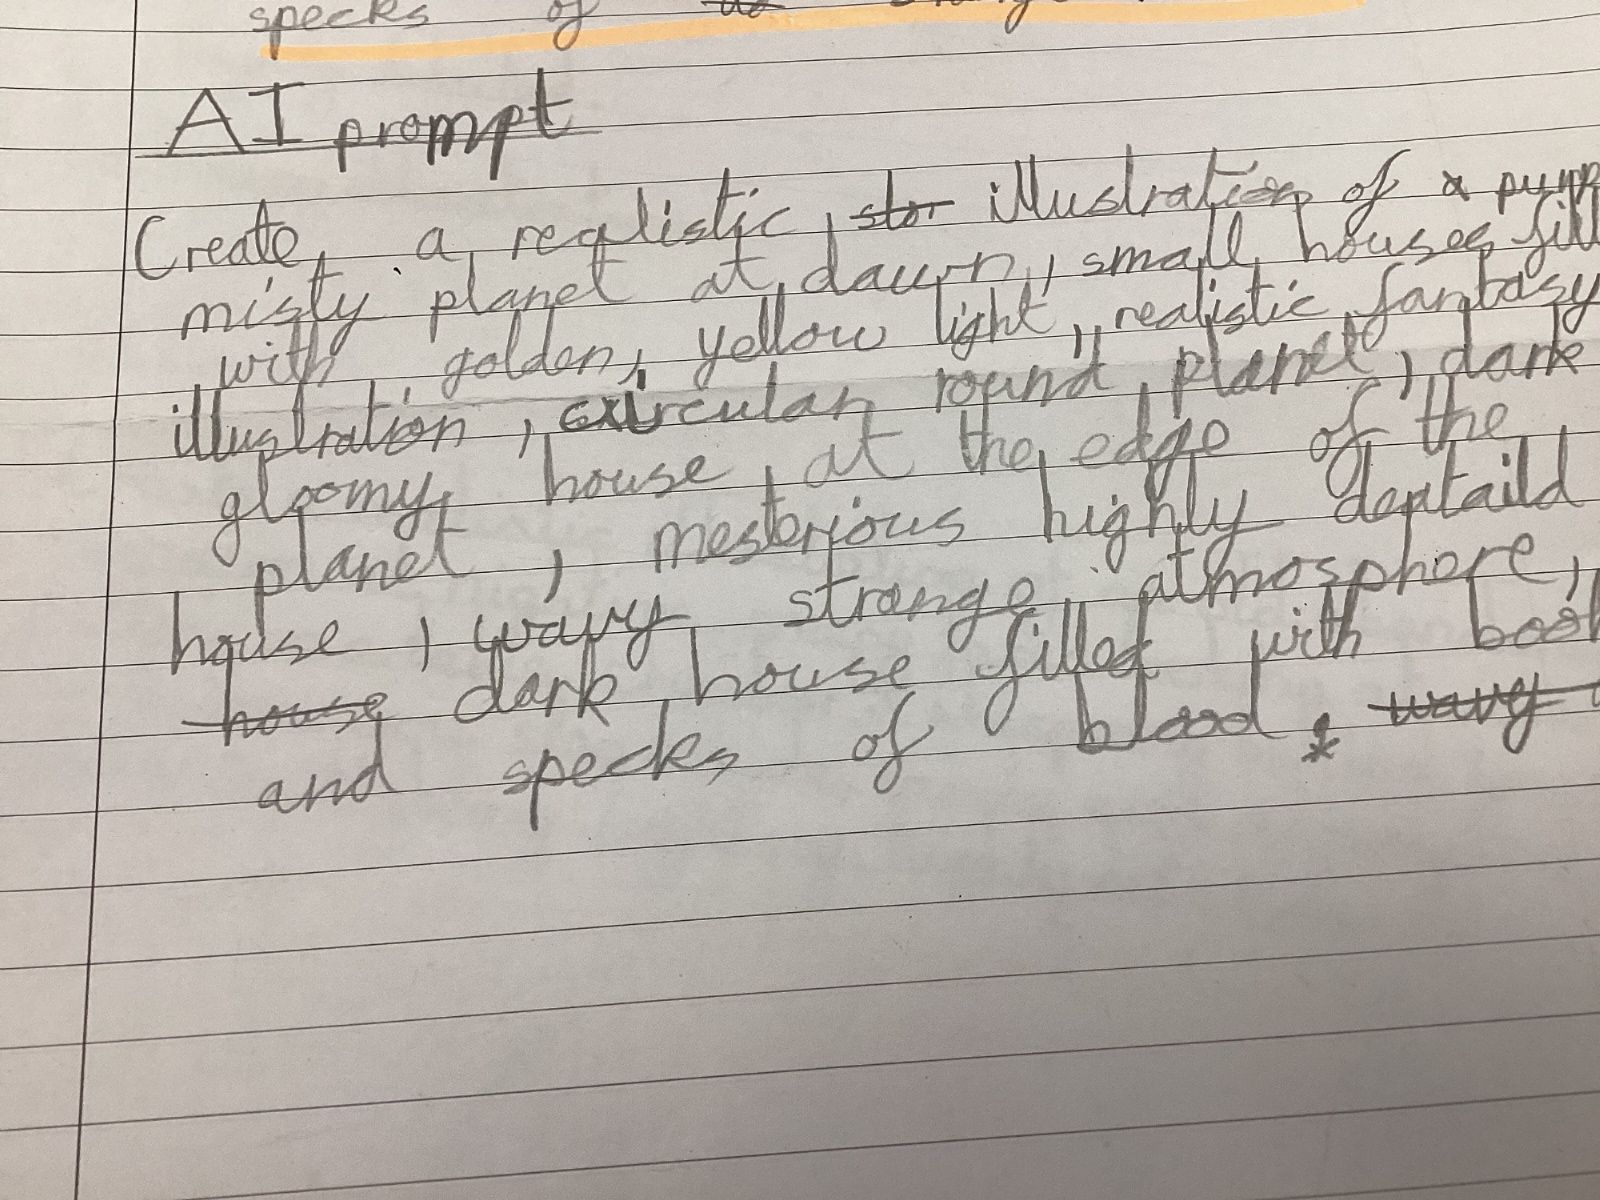 specks of
AI prompt
Create a realistic, illustration of a
misty planet at dawn, small houses
with golden, yellow light, realistic fantasy
illustration, circular round planet, dark
gloomy house at the edge of the
planet, mesterious highly deptaild
house, wavy strange atmosphere,
house dark house filled with
and specks of blood. wavy